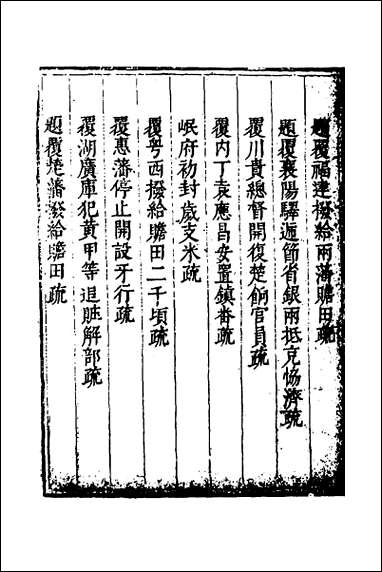 題覆福建撥給兩藩贍田疏
題覆襄陽驛遞節省銀兩抵充協濟疏
覆川貴總督開復楚餉官員疏
覆內丁袁應昌安置鎮番疏
岷府初封歲支米疏
覆粵西撥給贍田二千頃疏
覆惠藩停止開設牙行疏
覆湖廣庫犯黃甲等追贓解部疏
題覆楚藩撥給贍田疏